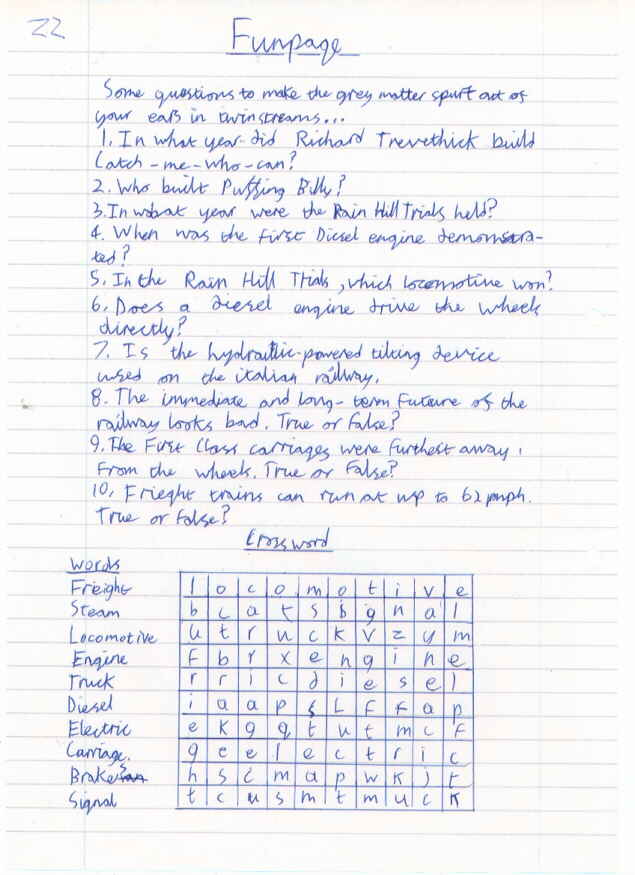 22
Funpage
Some questions to make the grey matter spurt out of
your ears in twinstreams...
1. In what year did Richard Trevethick build
Catch-me-who-can?
2. Who built Puffing Billy?
3. In what year were the Rain Hill Trials held?
4. When was the first Diesel engine demonstra-
ted?
5. In the Rain Hill Trials, which locomotive won?
6. Does a diesel engine drive the wheels
directly?
7. Is the hydraulic-powered tilting device
used on the italian railway.
8. The immediate and long-term future of the
railway looks bad. True or false?
9. The First Class carriages were furthest away
from the wheels. True or False?
10, Frieght trains can run at up to 62 mph.
True or false?
Crossword
Words
Freight l o c o m o t i v e
Steam b c a t s b g n a l
Locomotive u t r u c k v z y m
Engine f b r x e n g i n e
Truck r r i c d i e s e l
Diesel i a a p s L f f a p
Electric e k g q t u t m c f
Carriage. g e e l e c t r i c
Brakes h s i m a p w k j t
Signal t c u s m t m u c k